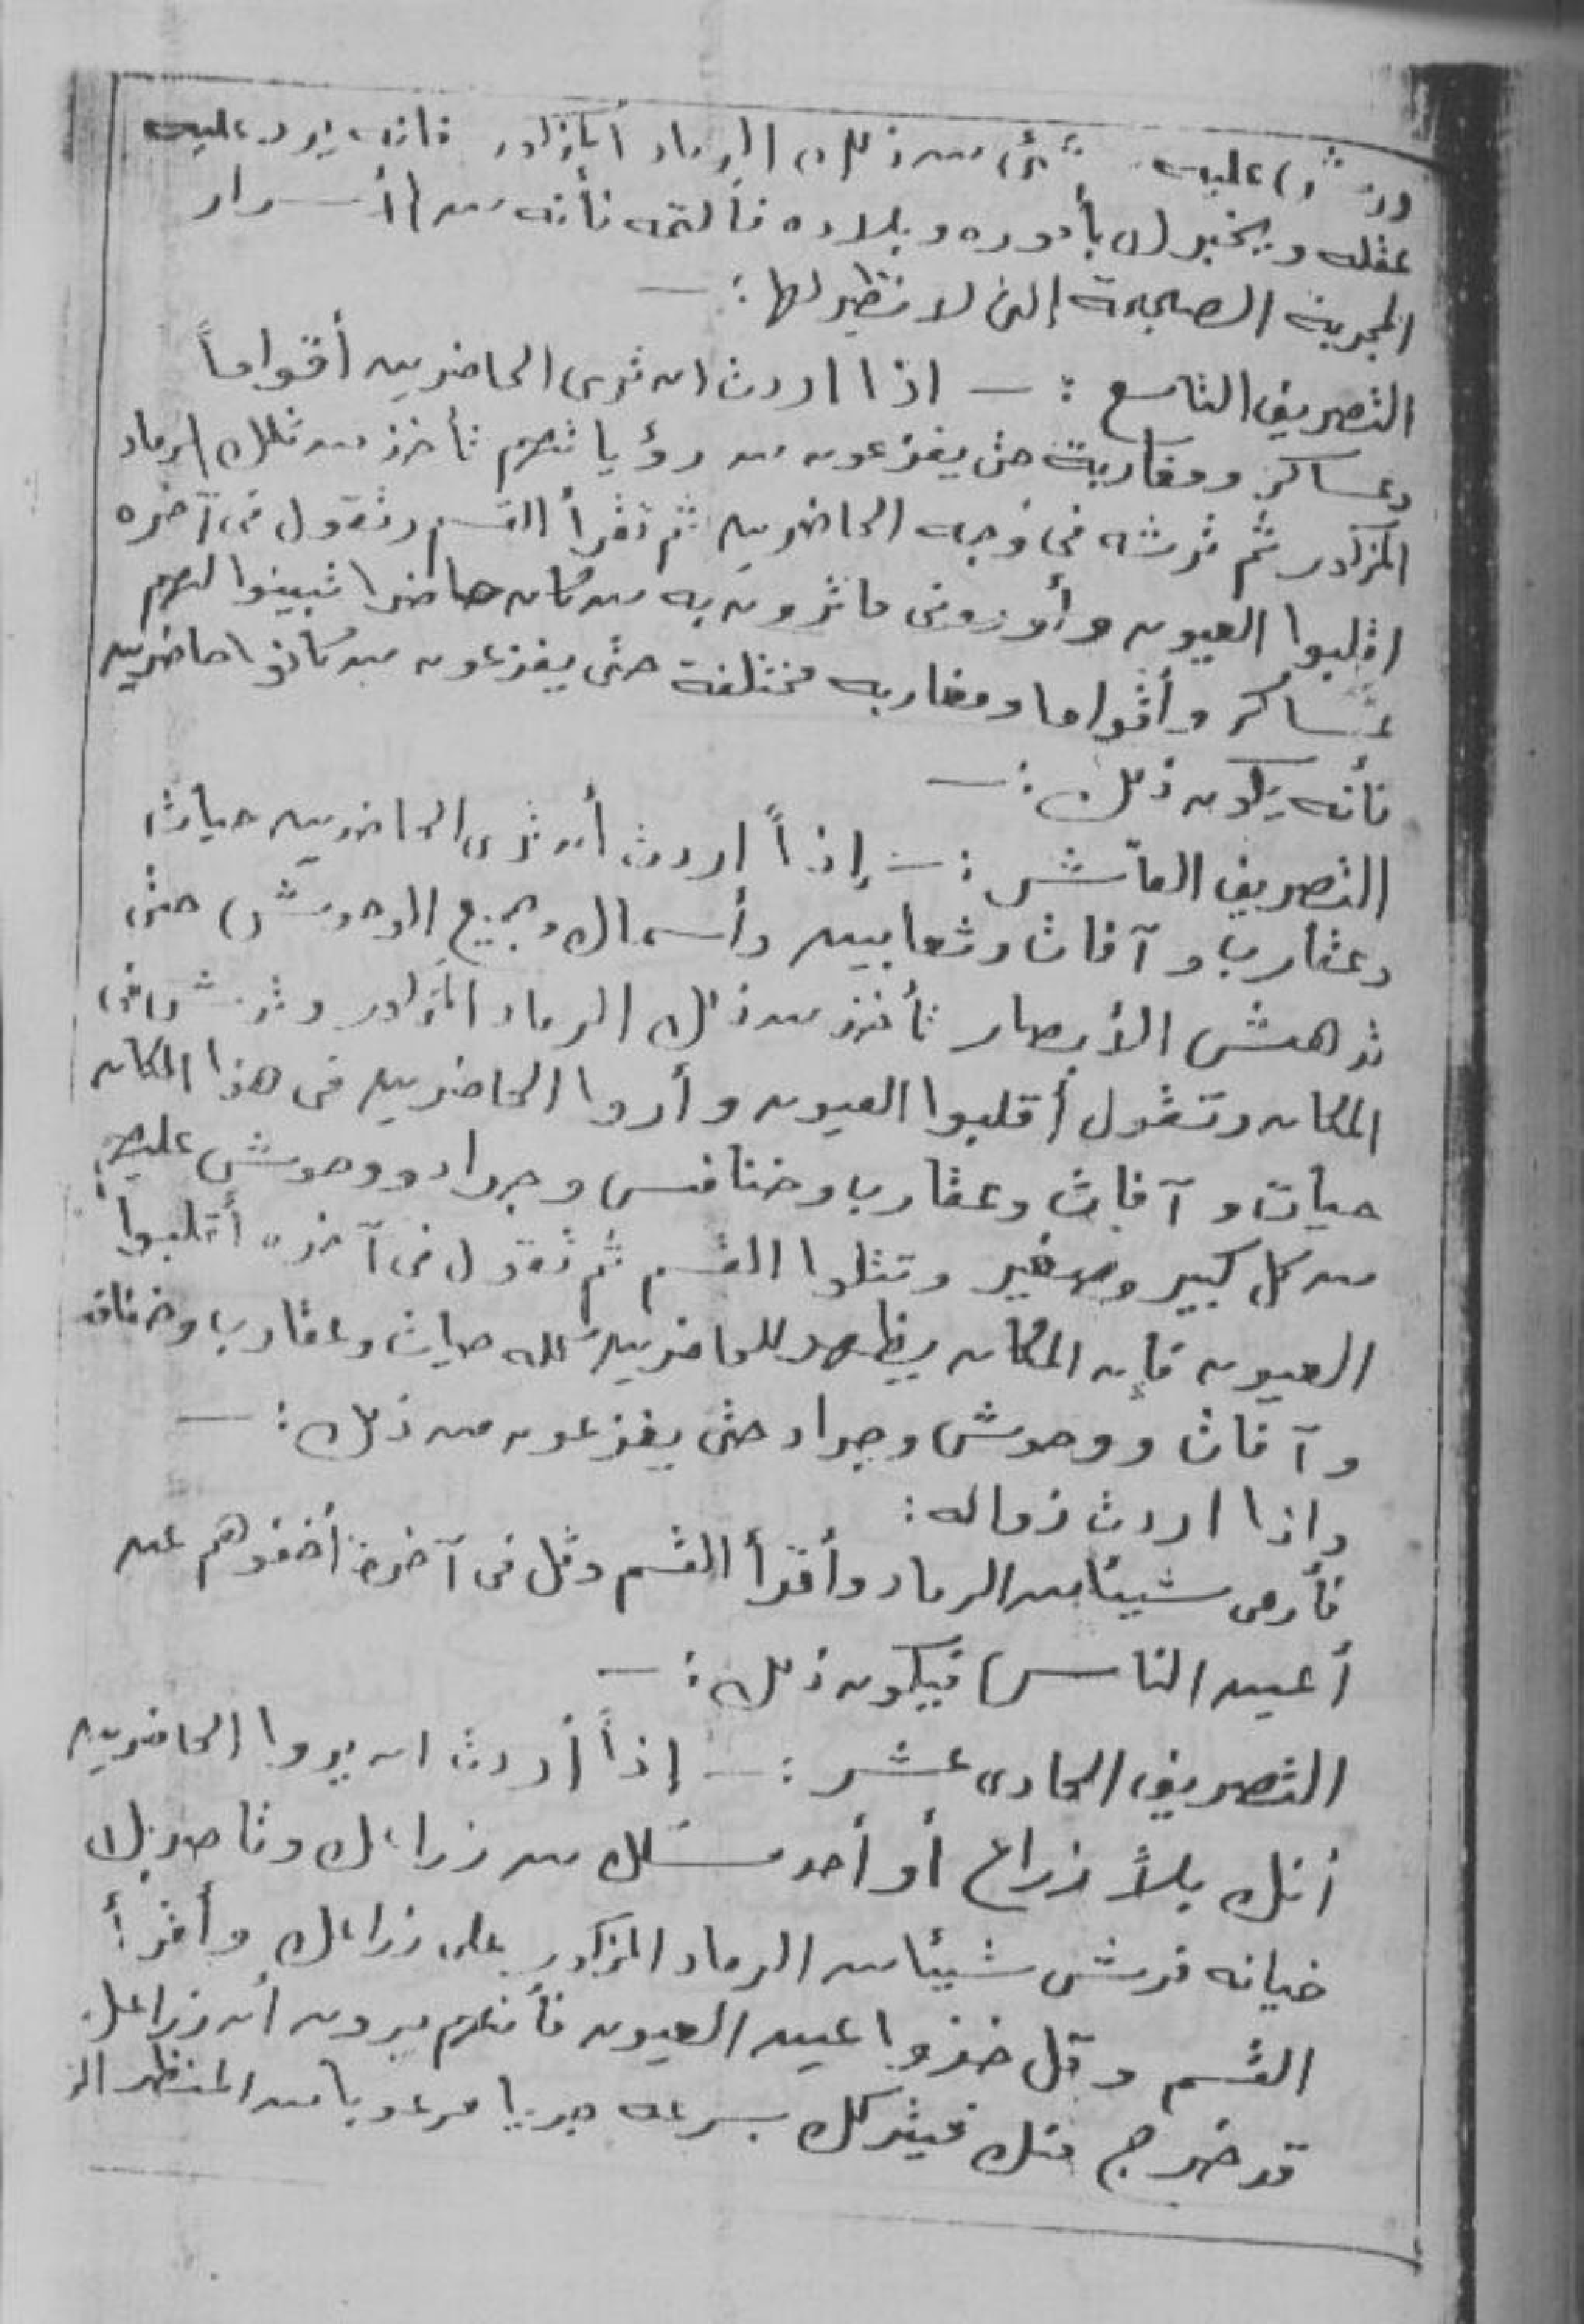 ورش عليه شئ من ذلك الرماد المذكور فانه يرد عليه
عقله ويخبرك بأموره وبلاده فألتمه فأنه من الأسرار
المجربة الصحيحة التى لا نظير لها :—
التصريف التاسع :— اذا اردت ان ترى الحاضرين أقواماً
وعساكر ومغاربة حتى يفزعون من رؤياتهم تأخذ من ذلك الرماد
المذكور ثم ترشه فى وجه الحاضرين ثم تقرأ القسم وتقول فى آخره
اقلبوا العيون وأورونى ما ترون به من كان حاضرا تبينوا لهم
عساكر وأقواما ومغاربه مختلفة حتى يفزعون من كانوا حاضرين
فأنه يكون ذلك :—
التصريف العاشر :— إذاً اردت أن ترى الحاضرين حيات
وعقارب وآفات وثعابين وأسماك وجميع الوحوش حتى
تدهش الأبصار تأخذ من ذلك الرماد المذكور وترش فى
المكان وتقول أقلبوا العيون وأروا الحاضرين فى هذا المكان
حيات وآفات وعقارب وخنافس وجراد ووحوش عليهم
من كل كبير وصغير وتتلوا القسم ثم تقول فى آخره أقلبوا
العيون فإن المكان يظهر للحاضرين كله حيات وعقارب وخنافس
وآفات ووحوش وجراد حتى يفزعون من ذلك :—
واذا اردت زواله :
فأرمى شيئا من الرماد وأقرأ القسم وقل فى آخره أخفوهم عن
أعين الناس فيكون ذلك :—
التصريف الحادى عشر :— إذاً أردت ان يروا الحاضرين
أنك بلا ذراع أو أحد مسكك من ذراعك وناصر بك
خيانه فرش شيئا من الرماد المذكور على ذراعك وأقرأ
القسم وقل خذوا عين العيون فأنهم يرون أن ذراعك
قد خرج منك فيتركك بسرعه جريا مرعوبا من المنظر الذ